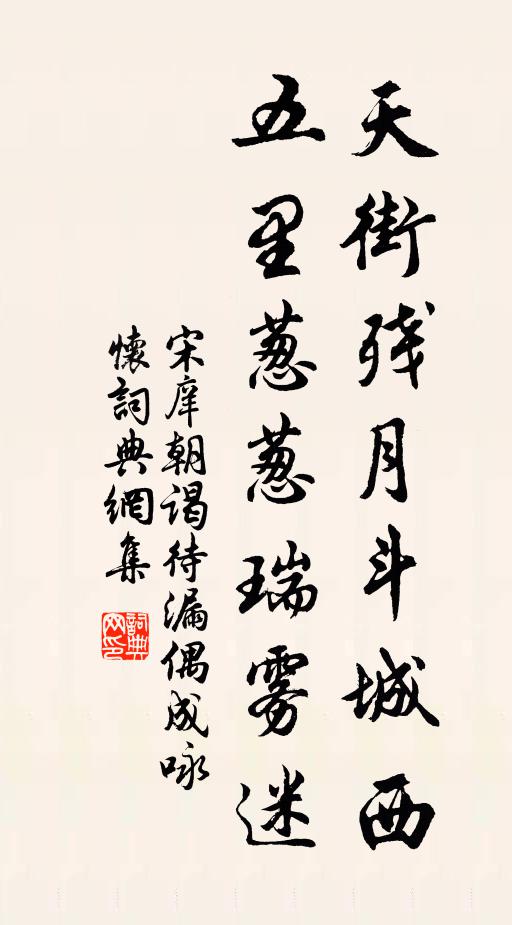 天街残月斗城西
五里葱葱瑞雾迷
宋庠朝谒待漏偶成咏
懷詞典網集
詞典网印